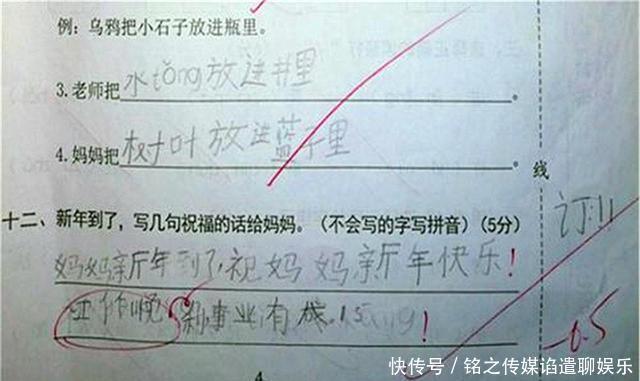 例：乌鸦把小石子放进瓶里。
3.老师把水tǒng放进井里。
4.妈妈把树叶放进蓝子里。
线
十二、新年到了，写几句祝福的话给妈妈。（不会写的字写拼音）（5分）
订!!
妈妈新年到了,祝妈妈新年快乐!
工作 事业有成
-0.5
4
快传号/铭之传媒谄遣聊娱乐